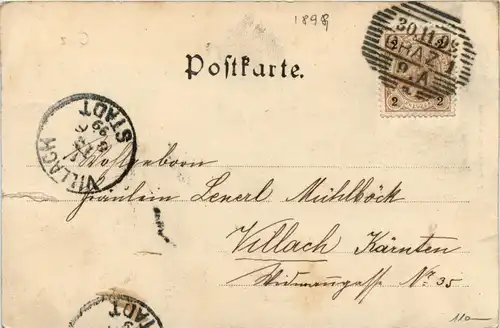 1898
Postkarte.
30.11.98
GRAZ 1
2 2
VILLACH
STADT
99
Wohlgeboren
Fräulein Lenerl Mühlböck
Villach Kärnten
Widmanngasse No 35
STADT
110-